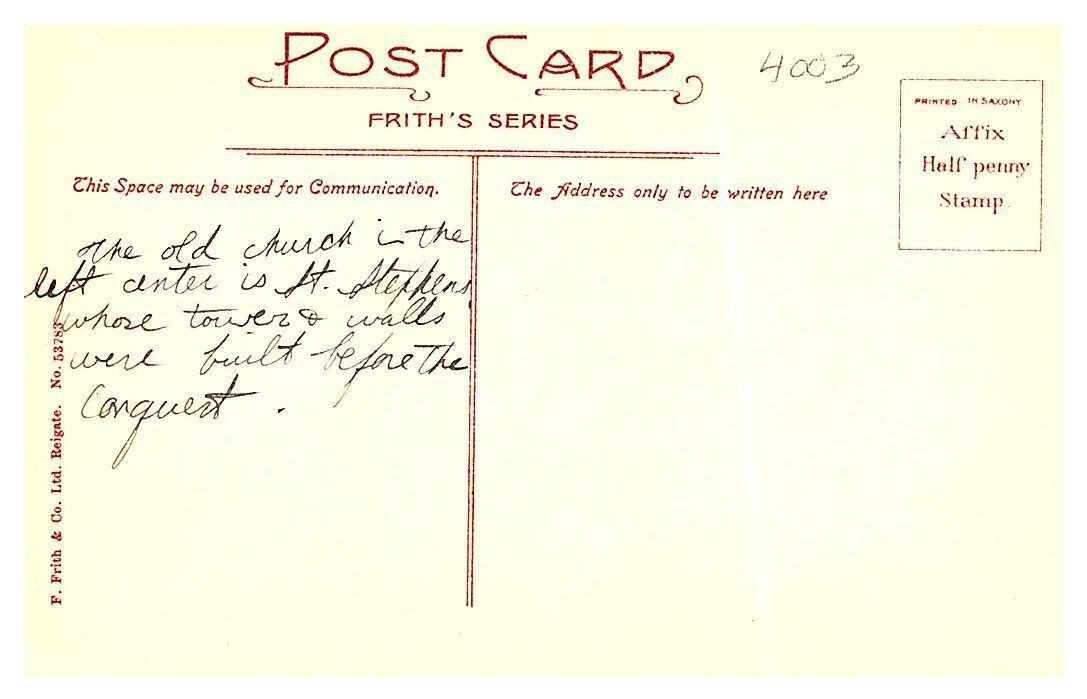 POST CARD
4003
FRITH'S SERIES
PRINTED IN SAXONY
Affix
Half penny
Stamp.
This Space may be used for Communication.
The Address only to be written here
The old church in the
left center is St. Stephens
whose tower & walls
were built before the
Conquest.
F. Frith & Co. Ltd. Reigate. No. 53783